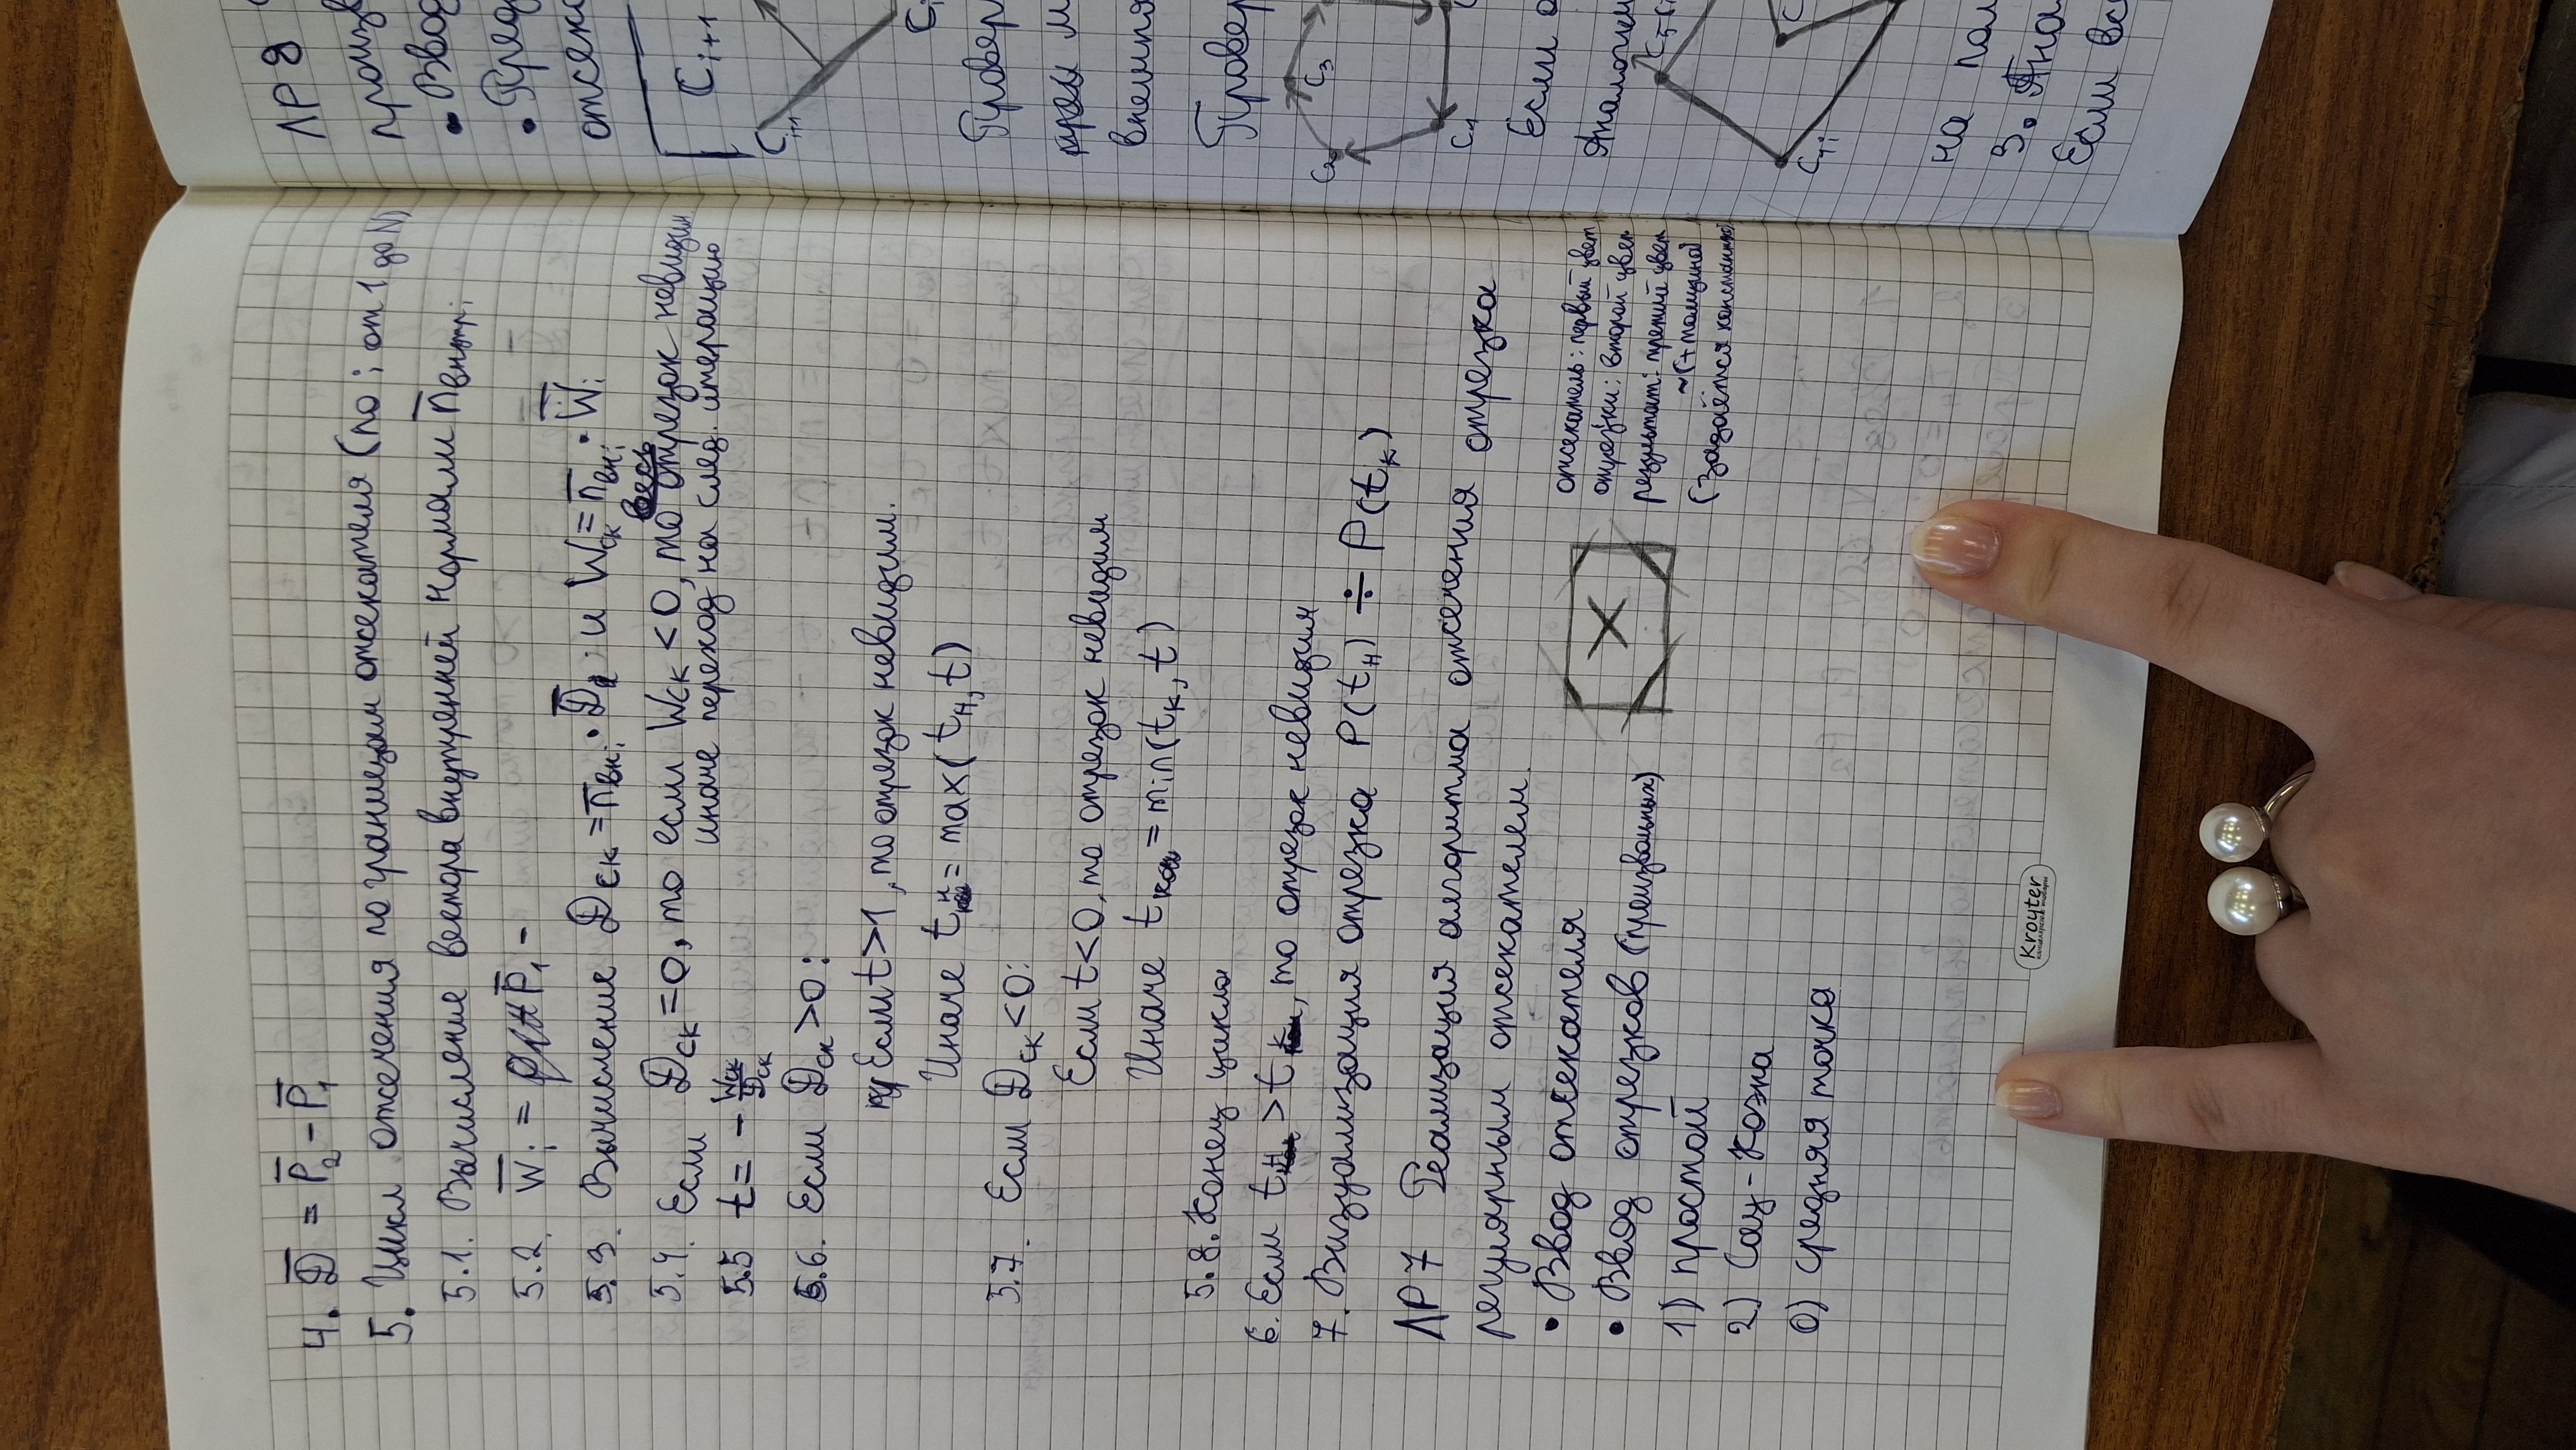 4. D̅ = P̅₂ - P̅₁
5. Цикл отсечения по границам отсекателя (по i от 1 до N)
5.1. Вычисление вектора внутренней нормали n̅внутрi
5.2. W̅i = P̅₁ -
5.3. Вычисление Dск = n̅внi · D̅ и Wск = n̅внi · W̅i
5.4. Если Dск = 0, то если Wск < 0, то отрезок невидим
иначе переход на след. итерацию
5.5 t = - Wск/Dск
5.6. Если Dск > 0:
Если t > 1, то отрезок невидим.
Иначе tн = max(tн, t)
5.7. Если Dск < 0:
Если t < 0, то отрезок невидим
Иначе tк = min(tк, t)
5.8. Конец цикла
6. Если tн > tк, то отрезок невидим
7. Визуализация отрезка P(tн) ÷ P(tк)
ЛР 7 Реализация алгоритма отсечения отрезка
регулярным отсекателем.
• Ввод отсекателя
• Ввод отрезков (произвольных)
1) простой
2) Сау-Коэна
0) средняя точка
отсекатель: первый цвет
отрезки: второй цвет
результат: третий цвет
~(+ толщина)
(задаётся константой)
Kroyter
канцелярские товары
ЛР 8
произв
• Ввод
• Пред
отсека
Ci+1
Ci+1
Ci
Провер
внешня
Провер
C2
C3
C1
Если
Аналогич
C5
C
на пол
3. Ана
Если вс